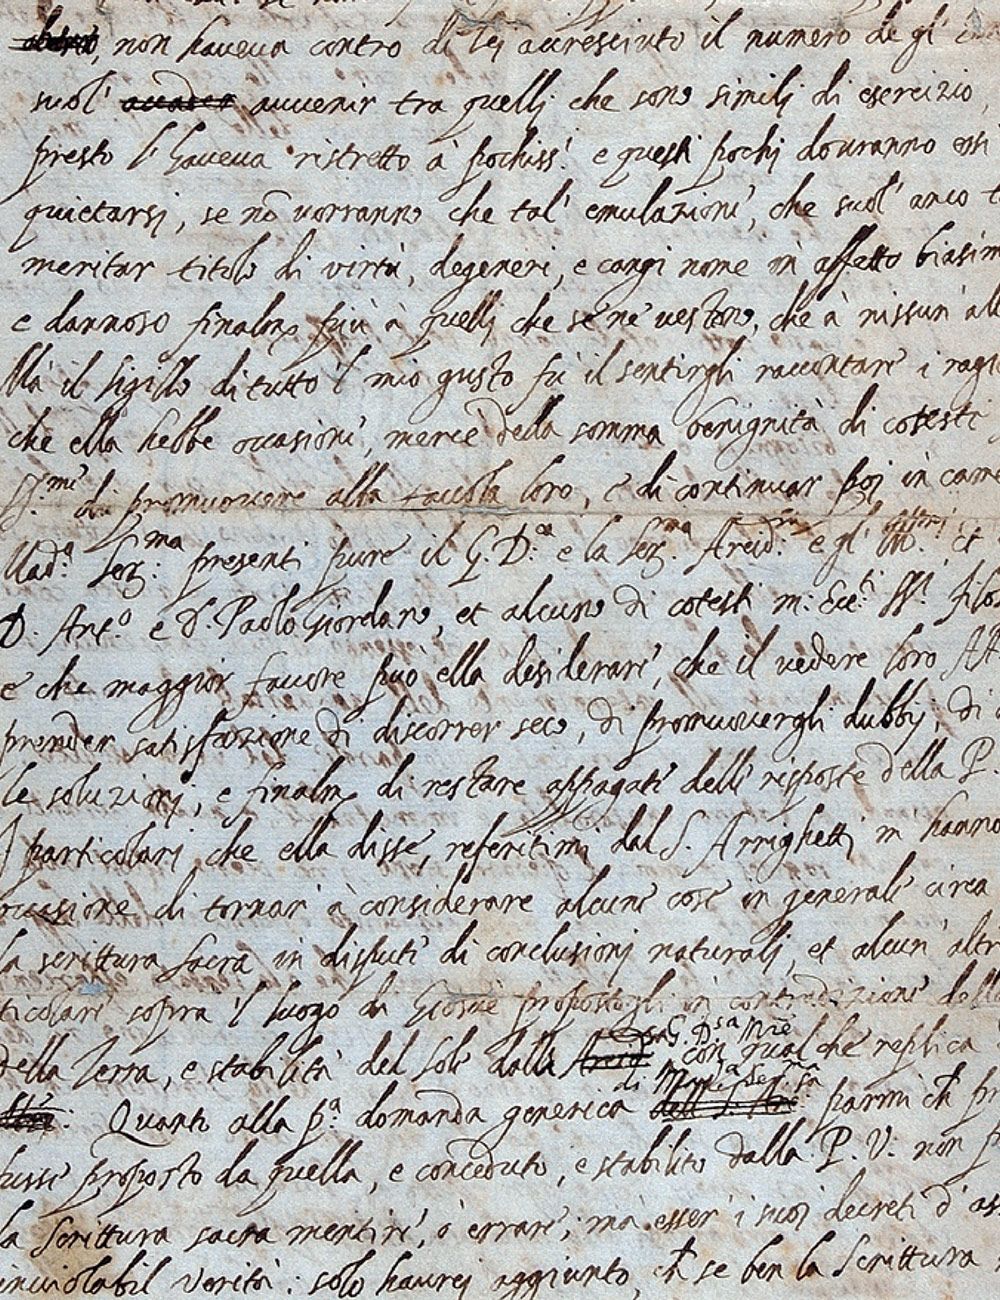 non haveva contro di lei accresciuto il numero de gl'
suol' accader avvenir tra quelli che sono simili di esercizio,
presto l'haveva ristretto à pochiss.i e questi pochi dovranno essi
quietarsi, se nõ vorranno che tal' emulazione, che suol' anco
meritar titolo di virtù, degeneri, e cangi nome in affetto biasim
e dannoso finalm.e più à quelli che se ne vestono, che à nissun' alt
Ma il sigillo di tutto 'l mio gusto fù il sentirgli raccontare i ragi
che ella hebbe occasione, mercè della somma benignità di cotesti
S.mi di promuovere alla tavola loro, e di continuar poi in came
Mad.a Ser.ma presenti pure il G. D.a e la Ser.ma Arcid.a e gl' Ill.mi et
D. Ant.o e D. Paolo Giordano, et alcuno di cotesti m: Ecc.ti filos
e che maggior favore può ella desiderare, che il vedere loro AA
prender satisfazione di discorrer seco, di promuovergli dubbij, di
le soluzioni, e finalm.e di restare appagate delle risposte della P.
I particolari che ella disse, referitimi dal S. Arrighetti, m hanno
occasione di tornar à considerare alcune cose in generale circa
la scrittura sacra in dispute di conclusioni naturali, et alcun' altr
ticolare sopra 'l luogo di Giosuè propostogli in contradizione della
della Terra, e stabilità del Sole dalla G. D.sa M.re con qualche replica
Quanto alla p.a domanda generica di Mad.a Ser.ma parmi ch̃ pr
fusse proposto da quella, e conceduto, e stabilito dalla P. V. non p
la Scrittura sacra mentire, ò errare; mà esser' i suoi decreti d' as
inviolabil verità: solo haurei aggiunto, ch̃ se ben la Scrittura